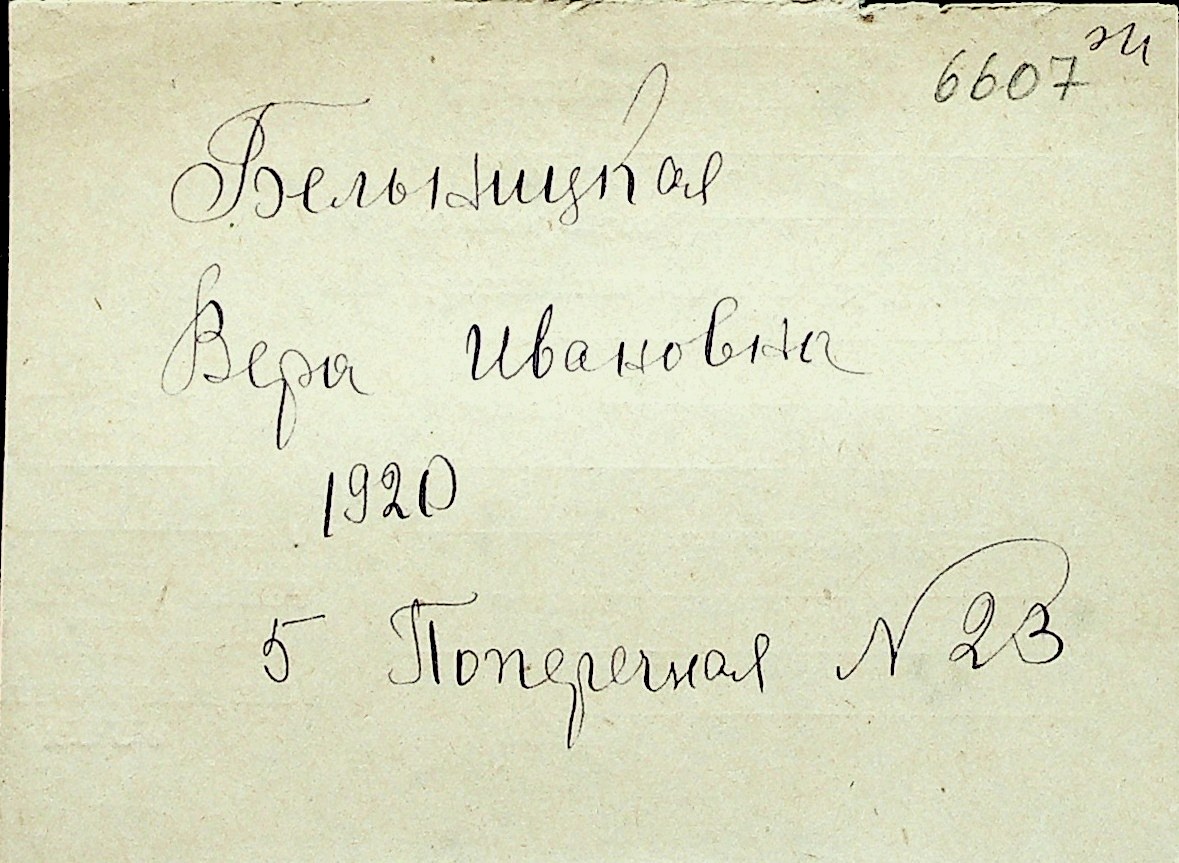 6607
Бельницкая
Вера Ивановна
1920
5 Поперечная N 23